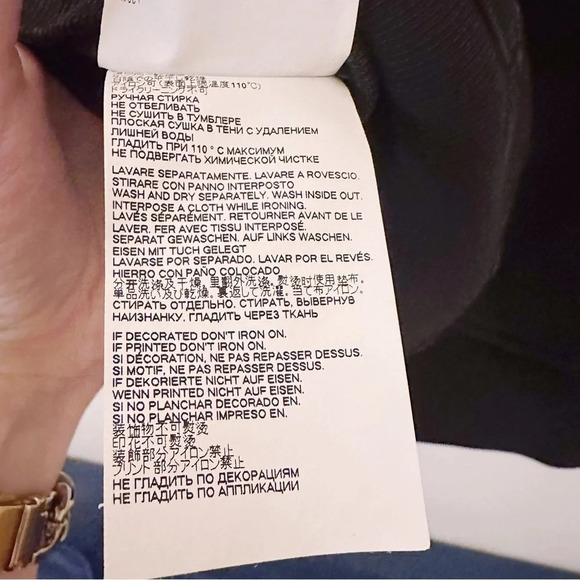 アイロン可(表面上限温度110℃)
ドライクリーニング不可
РУЧНАЯ СТИРКА
НЕ ОТБЕЛИВАТЬ
НЕ СУШИТЬ В ТУМБЛЕРЕ
ПЛОСКАЯ СУШКА В ТЕНИ С УДАЛЕНИЕМ
ЛИШНЕЙ ВОДЫ
ГЛАДИТЬ ПРИ 110 ° С МАКСИМУМ
НЕ ПОДВЕРГАТЬ ХИМИЧЕСКОЙ ЧИСТКЕ
LAVARE SEPARATAMENTE. LAVARE A ROVESCIO.
STIRARE CON PANNO INTERPOSTO
WASH AND DRY SEPARATELY. WASH INSIDE OUT.
INTERPOSE A CLOTH WHILE IRONING.
LAVÉS SÉPARÉMENT. RETOURNER AVANT DE LE
LAVER. FER AVEC TISSU INTERPOSÉ.
SEPARAT GEWASCHEN. AUF LINKS WASCHEN.
EISEN MIT TUCH GELEGT
LAVARSE POR SEPARADO. LAVAR POR EL REVÉS.
HIERRO CON PAÑO COLOCADO
分开洗涤及干燥。里翻外洗涤。熨烫时使用垫布。
単品洗い及び乾燥。裏返して洗濯。当て布アイロン。
СТИРАТЬ ОТДЕЛЬНО. СТИРАТЬ, ВЫВЕРНУВ
НАИЗНАНКУ. ГЛАДИТЬ ЧЕРЕЗ ТКАНЬ
IF DECORATED DON'T IRON ON.
IF PRINTED DON'T IRON ON.
SI DÉCORATION, NE PAS REPASSER DESSUS.
SI MOTIF, NE PAS REPASSER DESSUS.
IF DEKORIERTE NICHT AUF EISEN.
WENN PRINTED NICHT AUF EISEN.
SI NO PLANCHAR DECORADO EN.
SI NO PLANCHAR IMPRESO EN.
装饰物不可熨烫
印花不可熨烫
装飾部分アイロン禁止
プリント部分アイロン禁止
НЕ ГЛАДИТЬ ПО ДЕКОРАЦИЯМ
НЕ ГЛАДИТЬ ПО АППЛИКАЦИИ